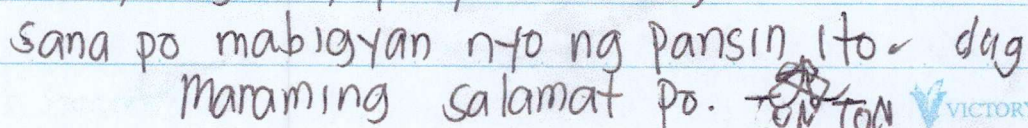 sana po mabigyan nyo ng pansin ito. dug
Maraming salamat po. TON TON
VICTORY